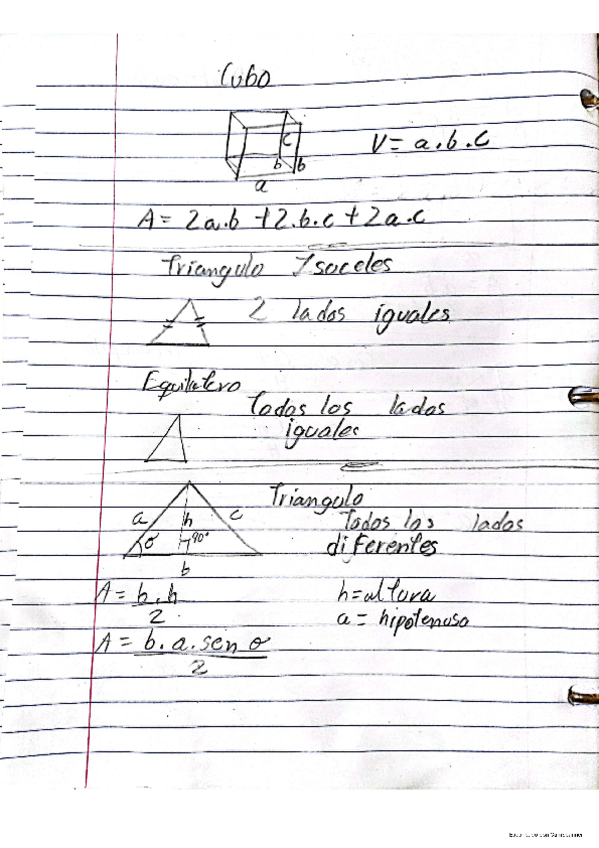 Cubo
c
b b
a
V = a.b.c
A = 2a.b + 2.b.c + 2a.c
Triangulo Isoceles
2 lados iguales
Equilatero
Todos los lados
iguales
Triangulo
Todos los lados
diferentes
a
h
c
σ
90°
b
A = b.h
2
h = altura
a = hipotenusa
A = b.a.sen σ
2